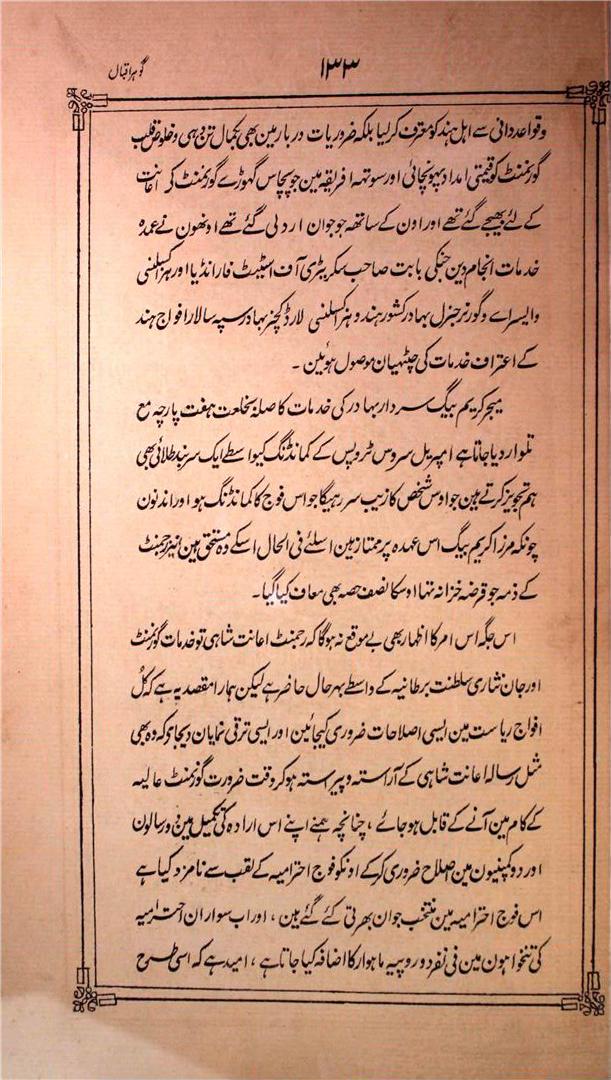 ۱۳۳
گوہر اقبال
وقواعد دانی سے اہل ہند کو معترف کرلیا بلکہ ضروریات دربار مین بھی بکمال تن دہی و خلوص قلب
گورنمنٹ کو قیمتی امداد پہونچائی اور سوتہہ افریقہ مین جو پچاس گھوڑے گورنمنٹ کی اعانت
کے لئے بھیجے گئے تھے اور اون کے ساتھ جو جوان اردلی گئے تھے اونھون نے عمدہ
خدمات انجام دین جنکی بابت صاحب سکریٹری آف اسٹیٹ فار انڈیا اور ہز اکسلنسی
وایسراے و گورنر جنرل بہادر کشور ہند و ہز اکسلنسی لارڈ کچنر بہادر سپہ سالار افواج ہند
کے اعتراف خدمات کی چٹھیان موصول ہوئین ۔
میجر کریم بیگ سردار بہادر کی خدمات کا صلہ بخلعت ہفت پارچہ مع
تلوار دیا جاتا ہے امپریل سروس ٹروپس کے کمانڈنگ کیواسطے ایک سربند طلائی بھی
ہم تجویز کرتے ہین جو اوس شخص کا زیب سر رہیگا جو اس فوج کا کمانڈنگ ہو اور اندنون
چونکہ مرزا کریم بیگ اس عہدہ پر ممتاز ہین اسلئے فی الحال اسکے وہ مستحق ہین نیز رجمنٹ
کے ذمہ جو قرضہ خزانہ تہا اوسکا نصف حصہ بھی معاف کیا گیا۔
اس جگہ اس امر کا اظہار بھی بے موقع نہ ہوگا کہ رجمنٹ اعانت شاہی تو خدمات گورنمنٹ
اور جان نثاری سلطنت برطانیہ کے واسطے بہرحال حاضر ہے لیکن ہمارا مقصد یہ ہے کہ کُل
افواج ریاست مین ایسی اصلاحات ضروری کیجائین اور ایسی ترقی نمایان دیجاوی کہ وہ بھی
مثل رسالہ اعانت شاہی کے آراستہ و پیراستہ ہوکر وقت ضرورت گورنمنٹ عالیہ
کے کام مین آنے کے قابل ہوجائے ، چنانچہ ہمنے اپنے اس ارادہ کی تکمیل مین دو رسالون
اور دو کمپنیون مین اصلاح ضروری کرکے اونکو فوج احترامیہ کے لقب سے نامزد کیا ہے
اس فوج احترامیہ مین منتخب جوان بھرتی کئے گئے ہین ، اور اب سواران احترامیہ
کی تنخواہون مین فی نفر دو روپیہ ماہوار کا اضافہ کیا جاتا ہے ، امید ہے کہ اسی طرح